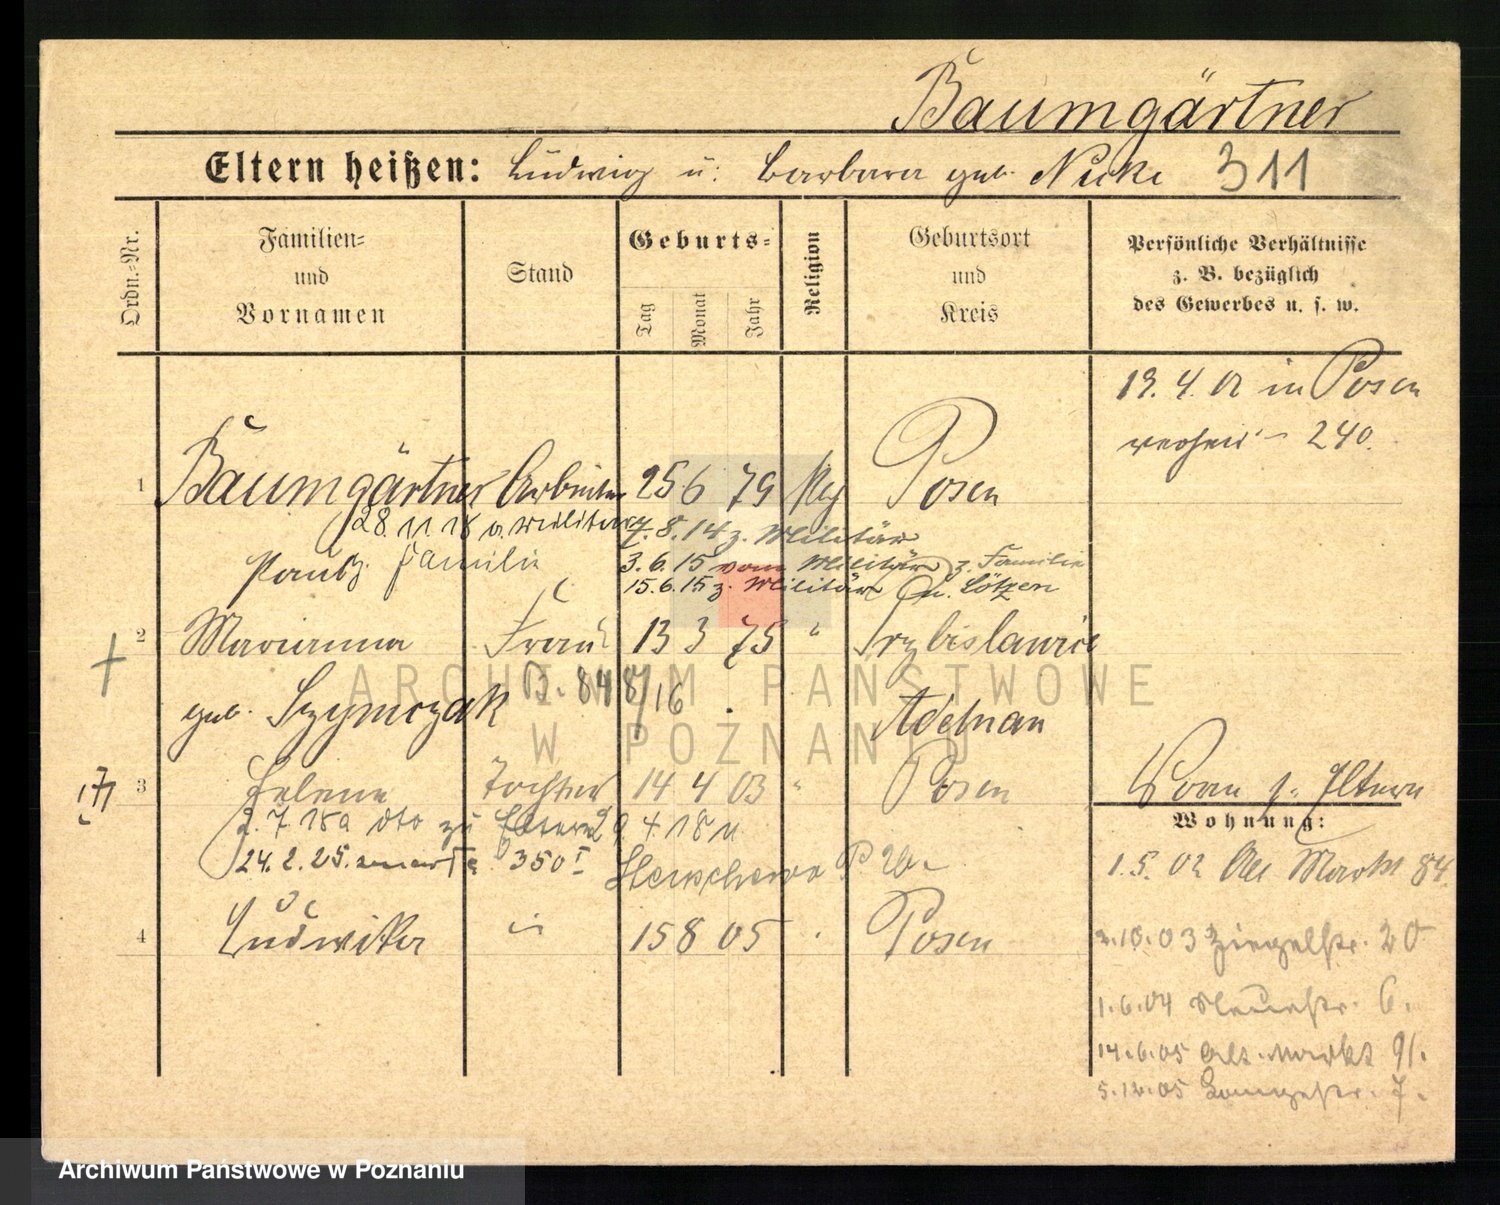 Baumgärtner
Eltern heißen: Ludwig u. Barbara geb. Nuke 311
Ordn.-Nr.
Familien- und Vornamen
Stand
Geburts-
Tag Monat Jahr
Religion
Geburtsort und Kreis
Persönliche Verhältnisse z. B. bezüglich des Gewerbes u. s. w.
19. 4. 02 in Posen
240.
1 Baumgärtner Arbeiter 25 6 79 Posen
28. 11. 18 v. Militär 7. 8. 14 z. Militär
z. Familie
Paul 3. 6. 15 vom Militär z. Familie
15. 6. 15 z. Militär Lötzen
2 Marianna Frau 13 3 75 " Przybislawice
geb. Szymczak B. 848/16 Adelnau
3 Helene Tochter 14 4 03 " Posen
z. Eltern
Wohnung:
2. 7. 18 a dto zu Eltern 29 4. 18 n
24. 2. 25. 350
1. 5. 02 Alt Markt 84.
4 Ludwika 15 8 05 Posen
2. 10. 03 Ziegelstr. 20
1. 6. 04 6.
14. 6. 05 Alt. Markt 91.
5. 12. 05 Langestr. 7.
ARCHIWUM PAŃSTWOWE
W POZNANIU
Archiwum Państwowe w Poznaniu